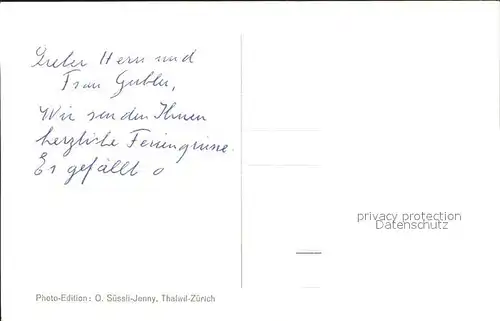 Lieber Herr und
Frau Gubler,
Wir senden Ihnen
herzliche Feriengrüsse.
Es gefällt
privacy protection
Datenschutz
Photo-Edition: O. Süssli-Jenny, Thalwil-Zürich